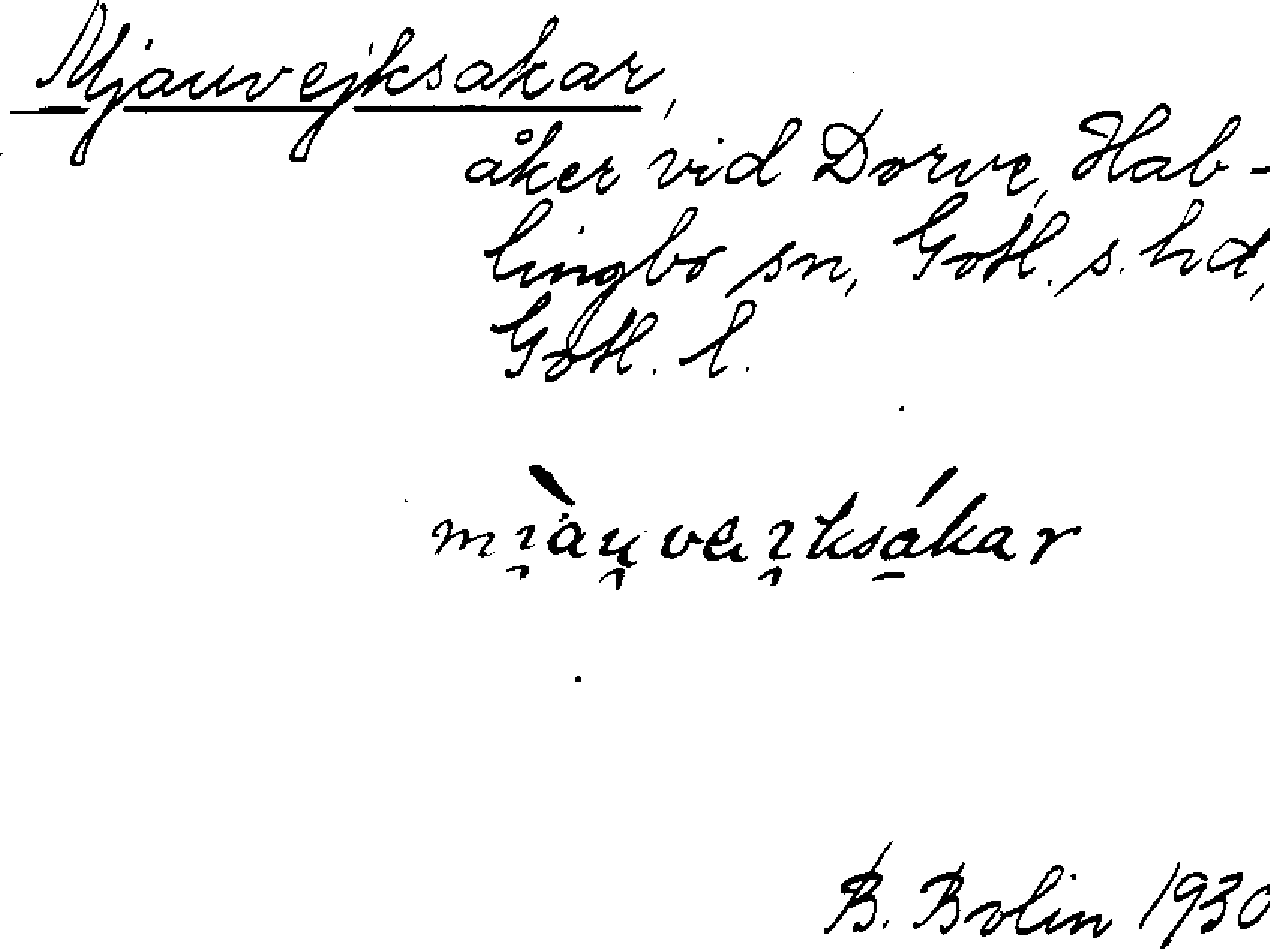 Mjauvejksakar,
åker vid Dorve, Hab-
lingbo sn, Gotl. s. hd,
Gotl. l.
mı̯àu̯vɛı̯ksá̱kar
B. Bolin 1930